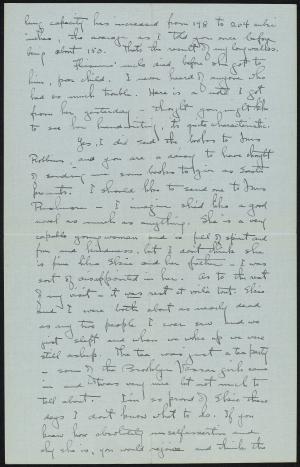 lung capacity has increased from 198 to 204 cubic
inches, the average, as I told you once before
being about 150. That's the result of my long walks.
uncle died, before she got to
him, poor child. I never heard of anyone who
had so much trouble. Here is a note I got
from her yesterday - thought you might like
to see her handwriting, its quite characteristic.
Yes, I did send the books to Miss
Robbins, and you are a dearey to have thought
of sending me some books to give as Easter
presents. I should like to send one to Miss
I imagine she'd like a good
novel as much as anything. She is a very
capable young woman and is full of spirit and
fun and kindness, but I don't think she
is fine like Elsie and her father - I was
sort of disappointed in her. As to the rest
of my visit - it was rest at white heat. Elsie
and I were both about as nearly dead
as any two people I ever saw and we
just slept and when we woke up we were
still asleep. The tea was just a tea party
- some of the Brooklyn Vassar girls came
in and it was very nice but not much to
tell about. I'm so proud of Elsie these
days I don't know what to do. If you
knew how absolutely unselfassertive and
shy she is, you would rejoice and think the